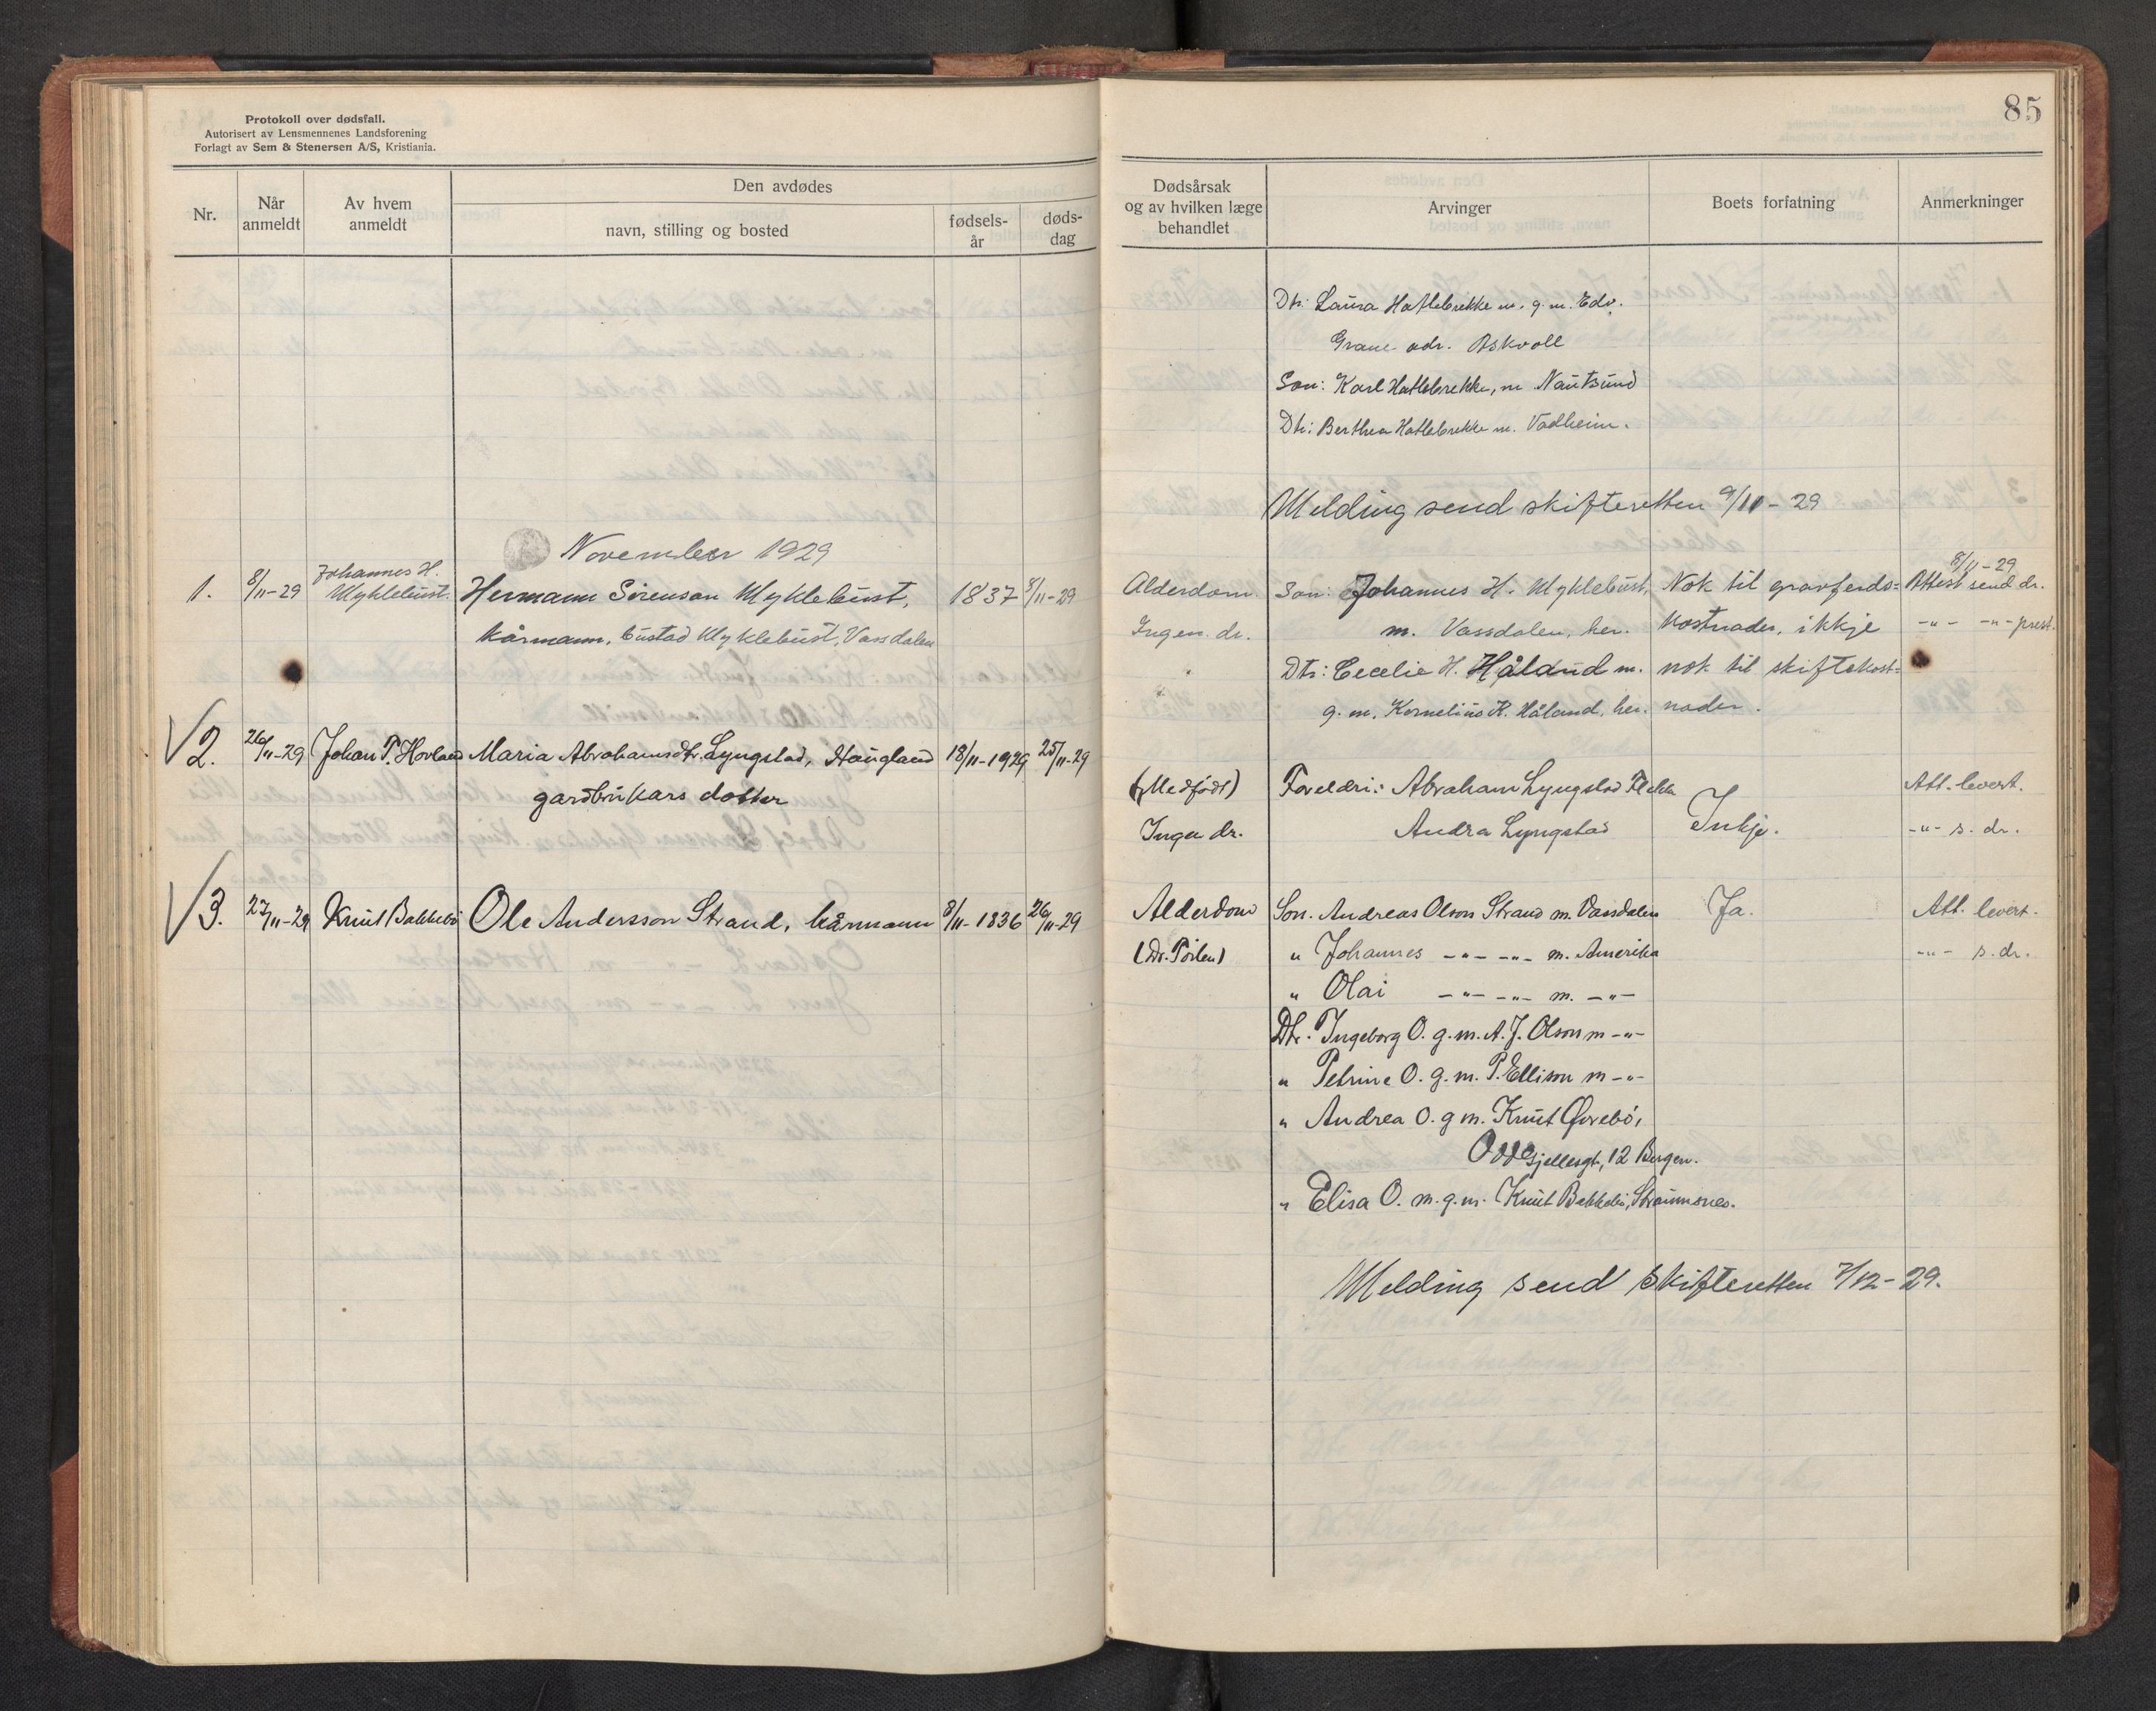 Protokoll over dødsfall.
Autorisert av Lensmennenes Landsforening
Forlagt av Sem & Stenersen A/S, Kristiania.
Nr.
Når anmeldt
Av hvem anmeldt
Den avdødes
navn, stilling og bosted
fødsels-år
døds-dag
November 1929
1. 8/11-29 Johannes H. Myklebust. Hermann Sörenson Myklebust, 1837 8/11-29
kårmann, bustad Myklebust, Vassdalen
2. 26/11-29 Johan P. Hovland Maria Abrahamsdtr. Lyngstad, Haugland 18/11-1929 25/11-29
gardbrukars dotter
3. 27/11-29 Knut Bakkebö Ole Andersson Strand, kårmann 8/11-1836 26/11-29
85
Dødsårsak
og av hvilken læge
behandlet
Arvinger
Boets forfatning
Anmerkninger
Dtr: Laura Hatlebrekke m. g.m. Edv.
Grane adr. Askvoll
Son: Karl Hatlebrekke, m Nautsund
Dtr: Berthea Hatlebrekke m. Vadheim.
Melding send skifteretten 9/11-29
8/11-29
Alderdom Son: Johannes H. Myklebust, Nok til gravferds= Attest send dr.
Ingen dr. m. Vassdalen, her. kostnader, ikkje -"- -"- prest.
Dtr: Cecelie H. Håland m. nok til skiftekost=
g.m. Kornelius K. Håland, her. nader.
(Medfödt) Foreldri: Abraham Lyngstad Att. levert.
Ingen dr. Andra Lyngstad Inkje. -"- s. dr.
Alderdom Son. Andreas Olson Strand m. Vassdalen Ja. Att. levert.
(Dr. ) " Johannes -"- -"- m. Amerika -"- s. dr.
" Olai -"- -"- m. -"-
Dtr. Ingeborg O. g.m. A. J. Olson m -"-
" Petrine O. g.m. P. Ellison m -"-
" Andrea O. g m. Knut Övrebö,
12 Bergen.
" Elisa O. m. g.m. Knut Bakkebö, Straumsnes.
Melding send skifteretten 7/12-29.